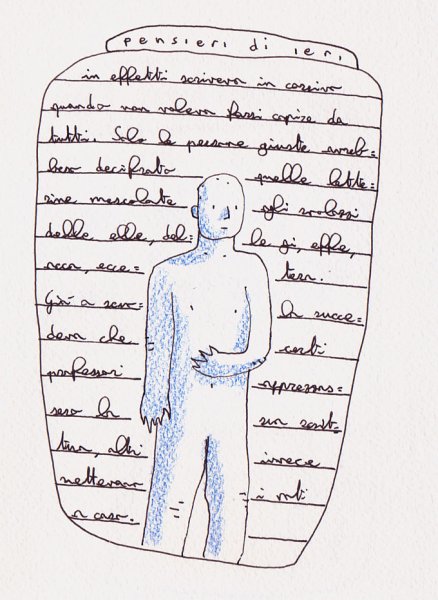 pensieri di ieri,
in effetti scriveva in corsivo
quando non voleva farsi capire da
tutti. Solo le persone giuste avreb=
bero decifrato quelle lette=
rine mescolate gli svolazzi
delle elle, del= le gi, effe,
acca, ecce= tera.
Già a scuo= la succe=
deva che certi
professori apprezzas=
sero la sua scrit=
tura, altri invece
mettevano i voti
a caso.